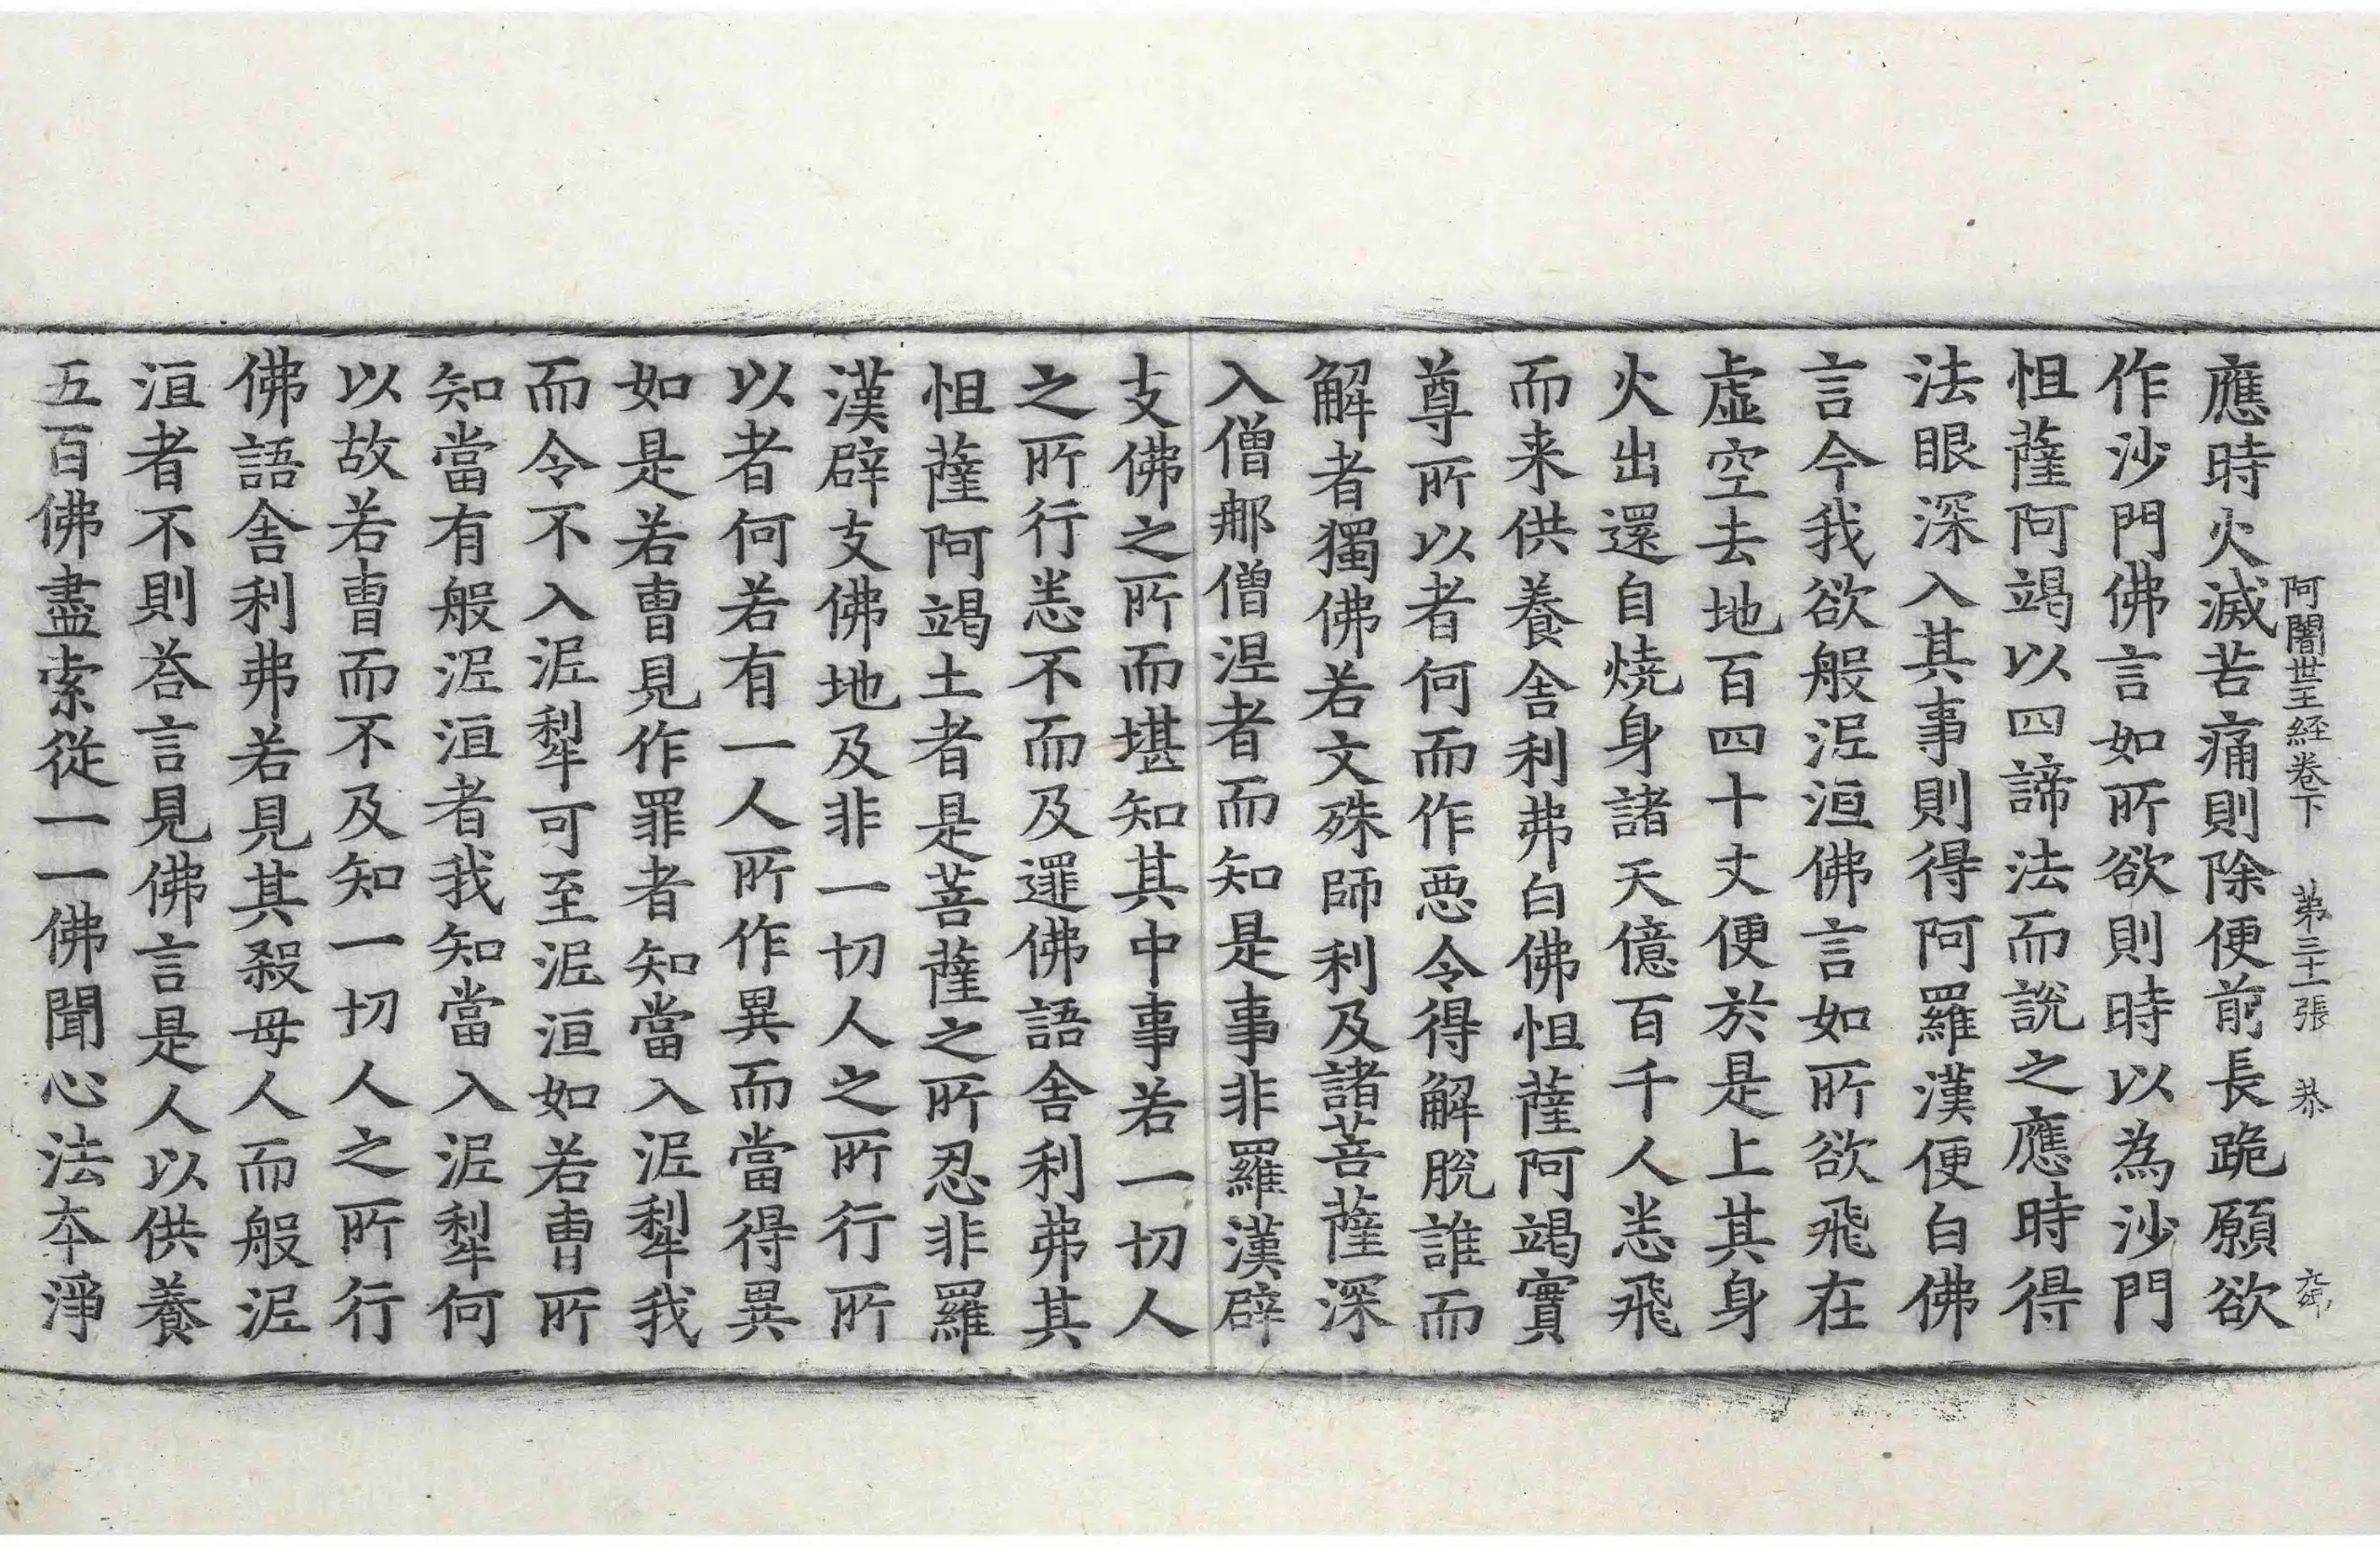 阿闍世王経卷下　第三十一張　恭
應時火滅苦痛則除便前長跪願欲
作沙門佛言如所欲則時以為沙門
怛薩阿竭以四諦法而說之應時得
法眼深入其事則得阿羅漢便白佛
言今我欲般泥洹佛言如所欲飛在
虛空去地百四十丈便於是上其身
火出還自燒身諸天億百千人悉飛
而来供養舍利弗白佛怛薩阿竭實
尊所以者何而作惡令得解脫誰而
解者獨佛若文殊師利及諸菩薩深
入僧那僧涅者而知是事非羅漢辟
支佛之所而堪知其中事若一切人
之所行悉不而及還佛語舍利弗其
怛薩阿竭土者是菩薩之所忍非羅
漢辟支佛地及非一切人之所行所
以者何若有一人所作異而當得異
如是若曹見作罪者知當入泥犁我
而令不入泥犁可至泥洹如若曹所
知當有般泥洹者我知當入泥犁何
以故若曹而不及知一切人之所行
佛語舍利弗若見其殺母人而般泥
洹者不則荅言見佛言是人以供養
五百佛盡索從一一佛聞心法本淨